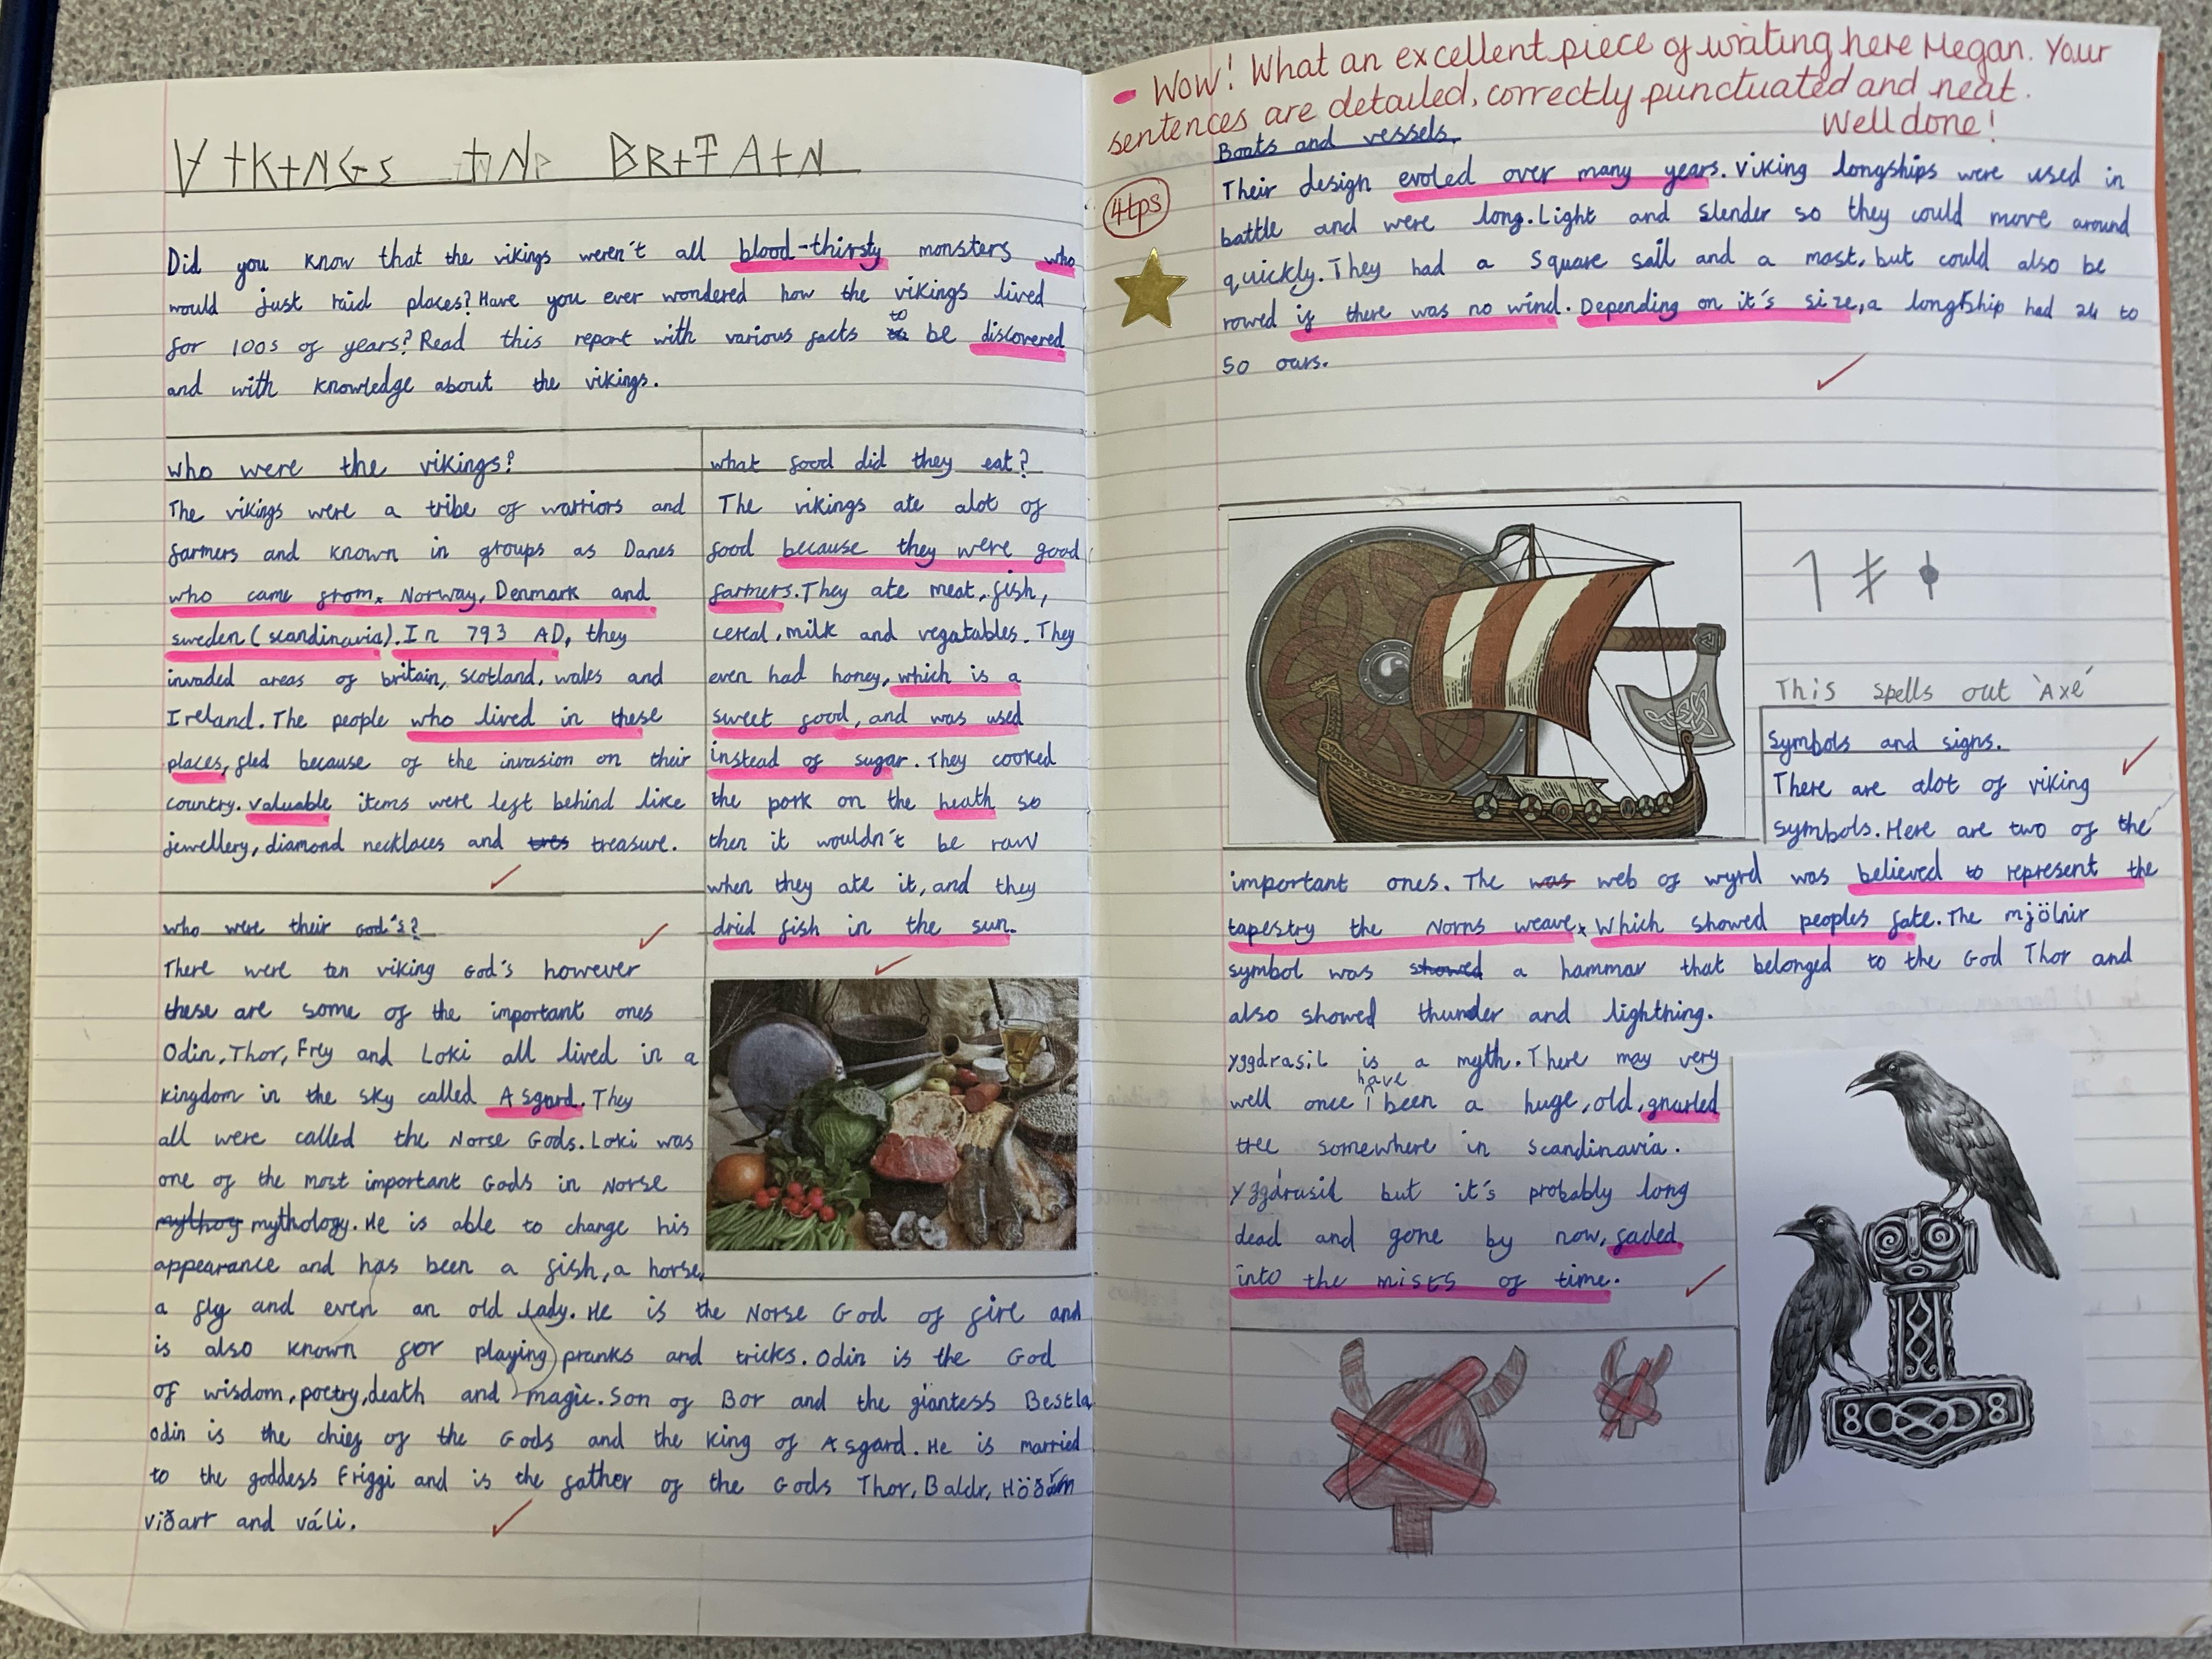 VIKINGS IN BRITAIN
Did you know that the vikings weren't all blood-thirsty monsters who
would just raid places? Have you ever wondered how the vikings lived
for 100s of years? Read this report with various facts to be discovered
and with knowledge about the vikings.
who were the vikings?
The vikings were a tribe of warriors and
farmers and known in groups as Danes
who came from. Norway, Denmark and
sweden (scandinavia). In 793 AD, they
invaded areas of britain, scotland, wales and
Ireland. The people who lived in these
places, fled because of the invasion on their
country. valuable items were left behind like
jewellery, diamond necklaces and tres treasure.
who were their God's?
There were ten viking God's however
these are some of the important ones
Odin, Thor, Frey and Loki all lived in a
kingdom in the sky called Asgard. They
all were called the Norse Gods. Loki was
one of the most important Gods in Norse
mythog mythology. He is able to change his
appearance and has been a fish, a horse,
a fly and even an old lady. He is the Norse God of fire and
is also known for playing pranks and tricks. Odin is the God
of wisdom, poetry, death and magic. Son of Bor and the giantess Bestla
odin is the chief of the Gods and the King of Asgard. He is married
to the goddess Friggi and is the father of the Gods Thor, Baldr,
viðarr and váli.
what food did they eat?
The vikings ate alot of
food because they were good
farmers. They ate meat, fish,
cereal, milk and vegatables. They
even had honey, which is a
sweet food, and was used
instead of sugar. They cooked
the pork on the heath so
then it wouldn't be raw
when they ate it, and they
dried fish in the sun.
- Wow! What an excellent piece of writing here Megan. Your
sentences are detailed, correctly punctuated and neat.
Well done!
4tps
Boats and vessels.
Their design evoled over many years. Viking longships were used in
battle and were long. Light and slender so they could move around
quickly. They had a square sail and a mast, but could also be
rowed if there was no wind. Depending on it's size, a longship had 24 to
50 oars.
This spells out 'Axe'
Symbols and signs.
There are alot of viking
symbols. Here are two of the
important ones. The was web of wyrd was believed to represent the
tapestry the Norns weave. Which showed peoples fate. The mjölnir
symbol was showed a hammar that belonged to the God Thor and
also showed thunder and lightning.
Yggdrasil is a myth. There may very
well once have been a huge, old, gnarled
tree somewhere in scandinavia.
Yggdrasil but it's probably long
dead and gone by now, faded
into the mists of time.